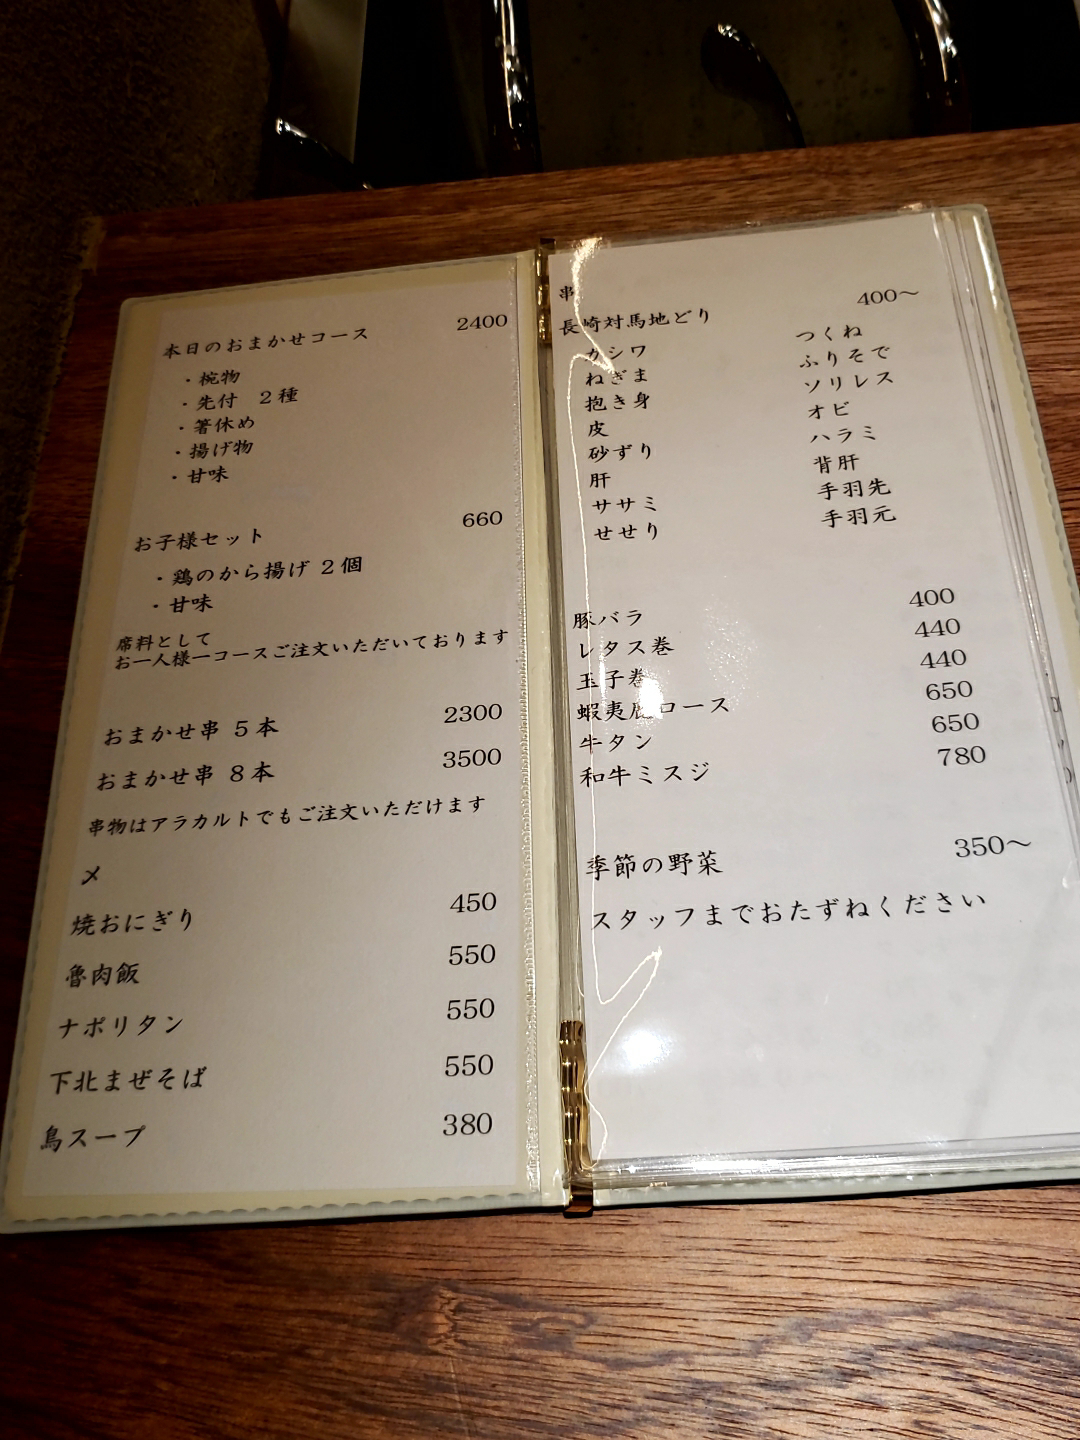 本日のおまかせコース 2400
・椀物
・先付 2種
・箸休め
・揚げ物
・甘味
お子様セット 660
・鶏のから揚げ 2個
・甘味
席料として
お一人様一コースご注文いただいております
おまかせ串 5本 2300
おまかせ串 8本 3500
串物はアラカルトでもご注文いただけます
〆
焼おにぎり 450
魯肉飯 550
ナポリタン 550
下北まぜそば 550
鳥スープ 380
串
長崎対馬地どり 400〜
カシワ つくね
ねぎま ふりそで
抱き身 ソリレス
皮 オビ
砂ずり ハラミ
肝 背肝
ササミ 手羽先
せせり 手羽元
豚バラ 400
レタス巻 440
玉子巻 440
蝦夷鹿ロース 650
牛タン 650
和牛ミスジ 780
季節の野菜 350〜
スタッフまでおたずねください